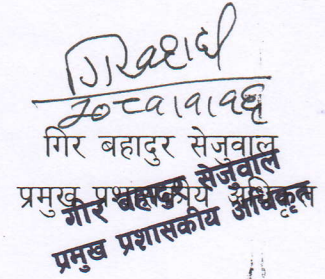 गिर बहादुर सेजुवाल
प्रमुख प्रशासकीय अधिकृत
गीर बहादुर सेजुवाल
प्रमुख प्रशासकीय अधिकृत